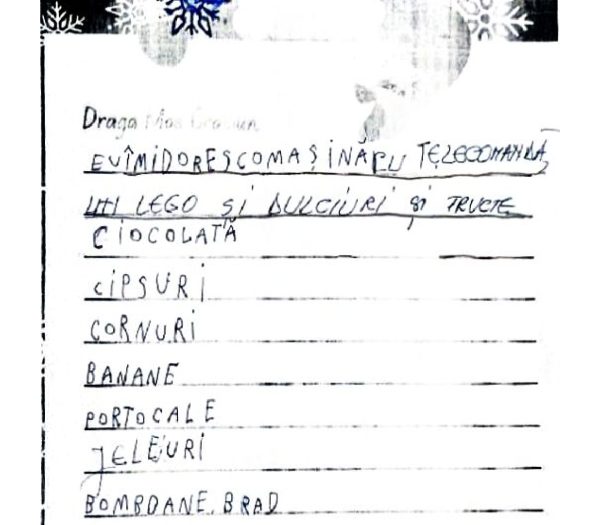 Draga Moș Crăciun
EUÎMIDORESCOMAȘINĂCU TELECOMANDĂ
UN LEGO ȘI DULCIURI ȘI FRUCTE
CIOCOLATĂ
CIPSURI
CORNURI
BANANE
PORTOCALE
JELEURI
BOMBOANE. BRAD